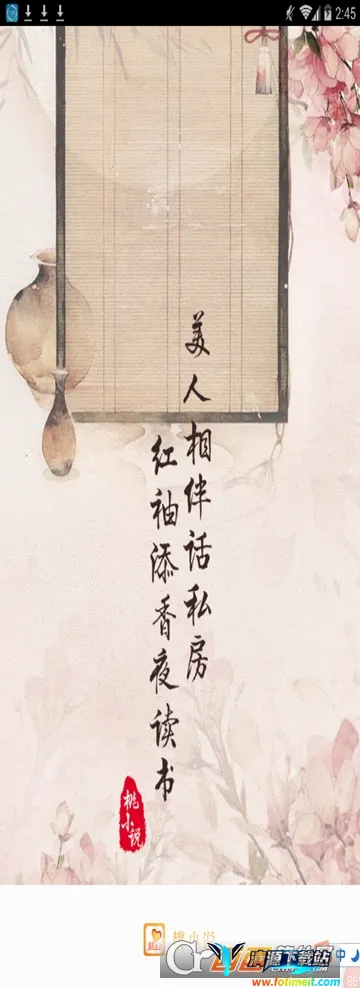 2:45
美人相伴话私房
红袖添香夜读书
桃小说
桃小说
源下载站
www.fotimeit.com
中